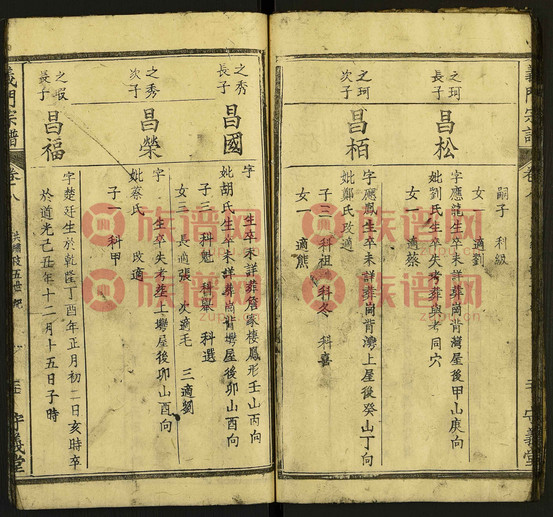 義門宗譜
之珂
長子
昌松
嗣子 科級
女 適劉
字應龍生卒未詳葬崗背灣屋後甲山庚向
妣劉氏生卒失考葬與考同穴
女 適蔡
之珂
次子
昌栢
字應鳳生卒未詳葬崗背灣上屋後癸山丁向
妣鄭氏改適
子三 科祖 科冬 科喜
女一 適熊
守義堂
之秀
長子
昌國
字 生卒未詳葬詹家棲鳳形壬山丙向
妣胡氏生卒未詳葬崗背灣屋後卯山酉向
子三 科魁 科嶽 科選
女三 長適張 次適毛 三適劉
之秀
次子
昌榮
字 生卒失考葬上灣屋後卯山酉向
妣蔡氏 改適
子一 科甲
之瑕
長子
昌福
字楚廷生於乾隆丁酉年正月初二日亥時卒
於道光己丑年十二月十五日子時
義門宗譜
卷八
守義堂
族谱网
族谱网